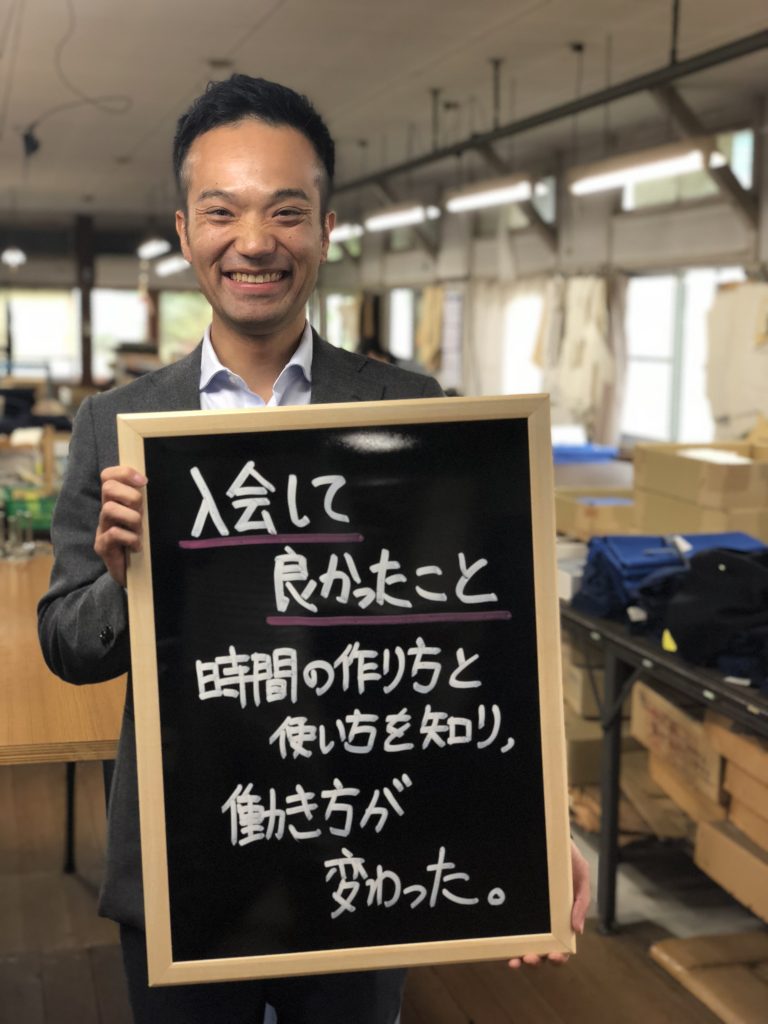 入会して
良かったこと
時間の作り方と
使い方を知り,
働き方が
変わった。